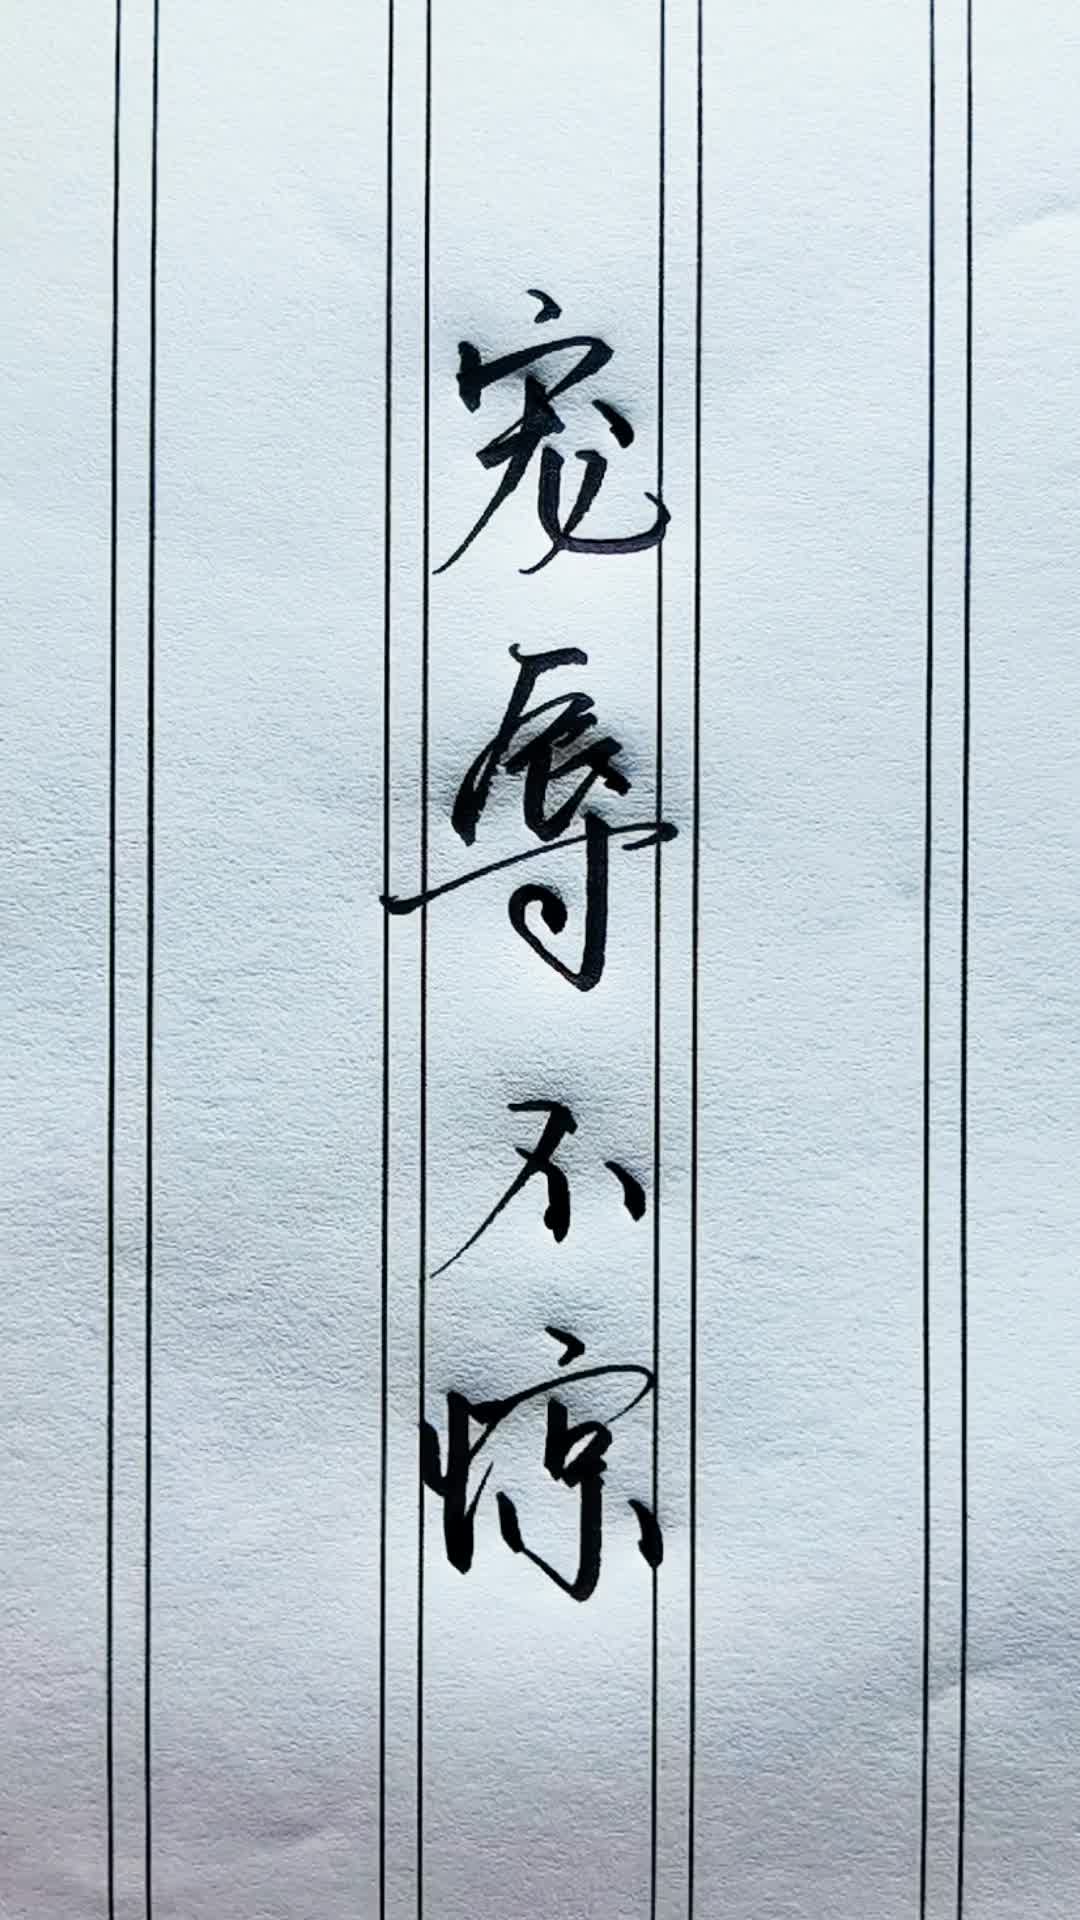 宠辱不惊